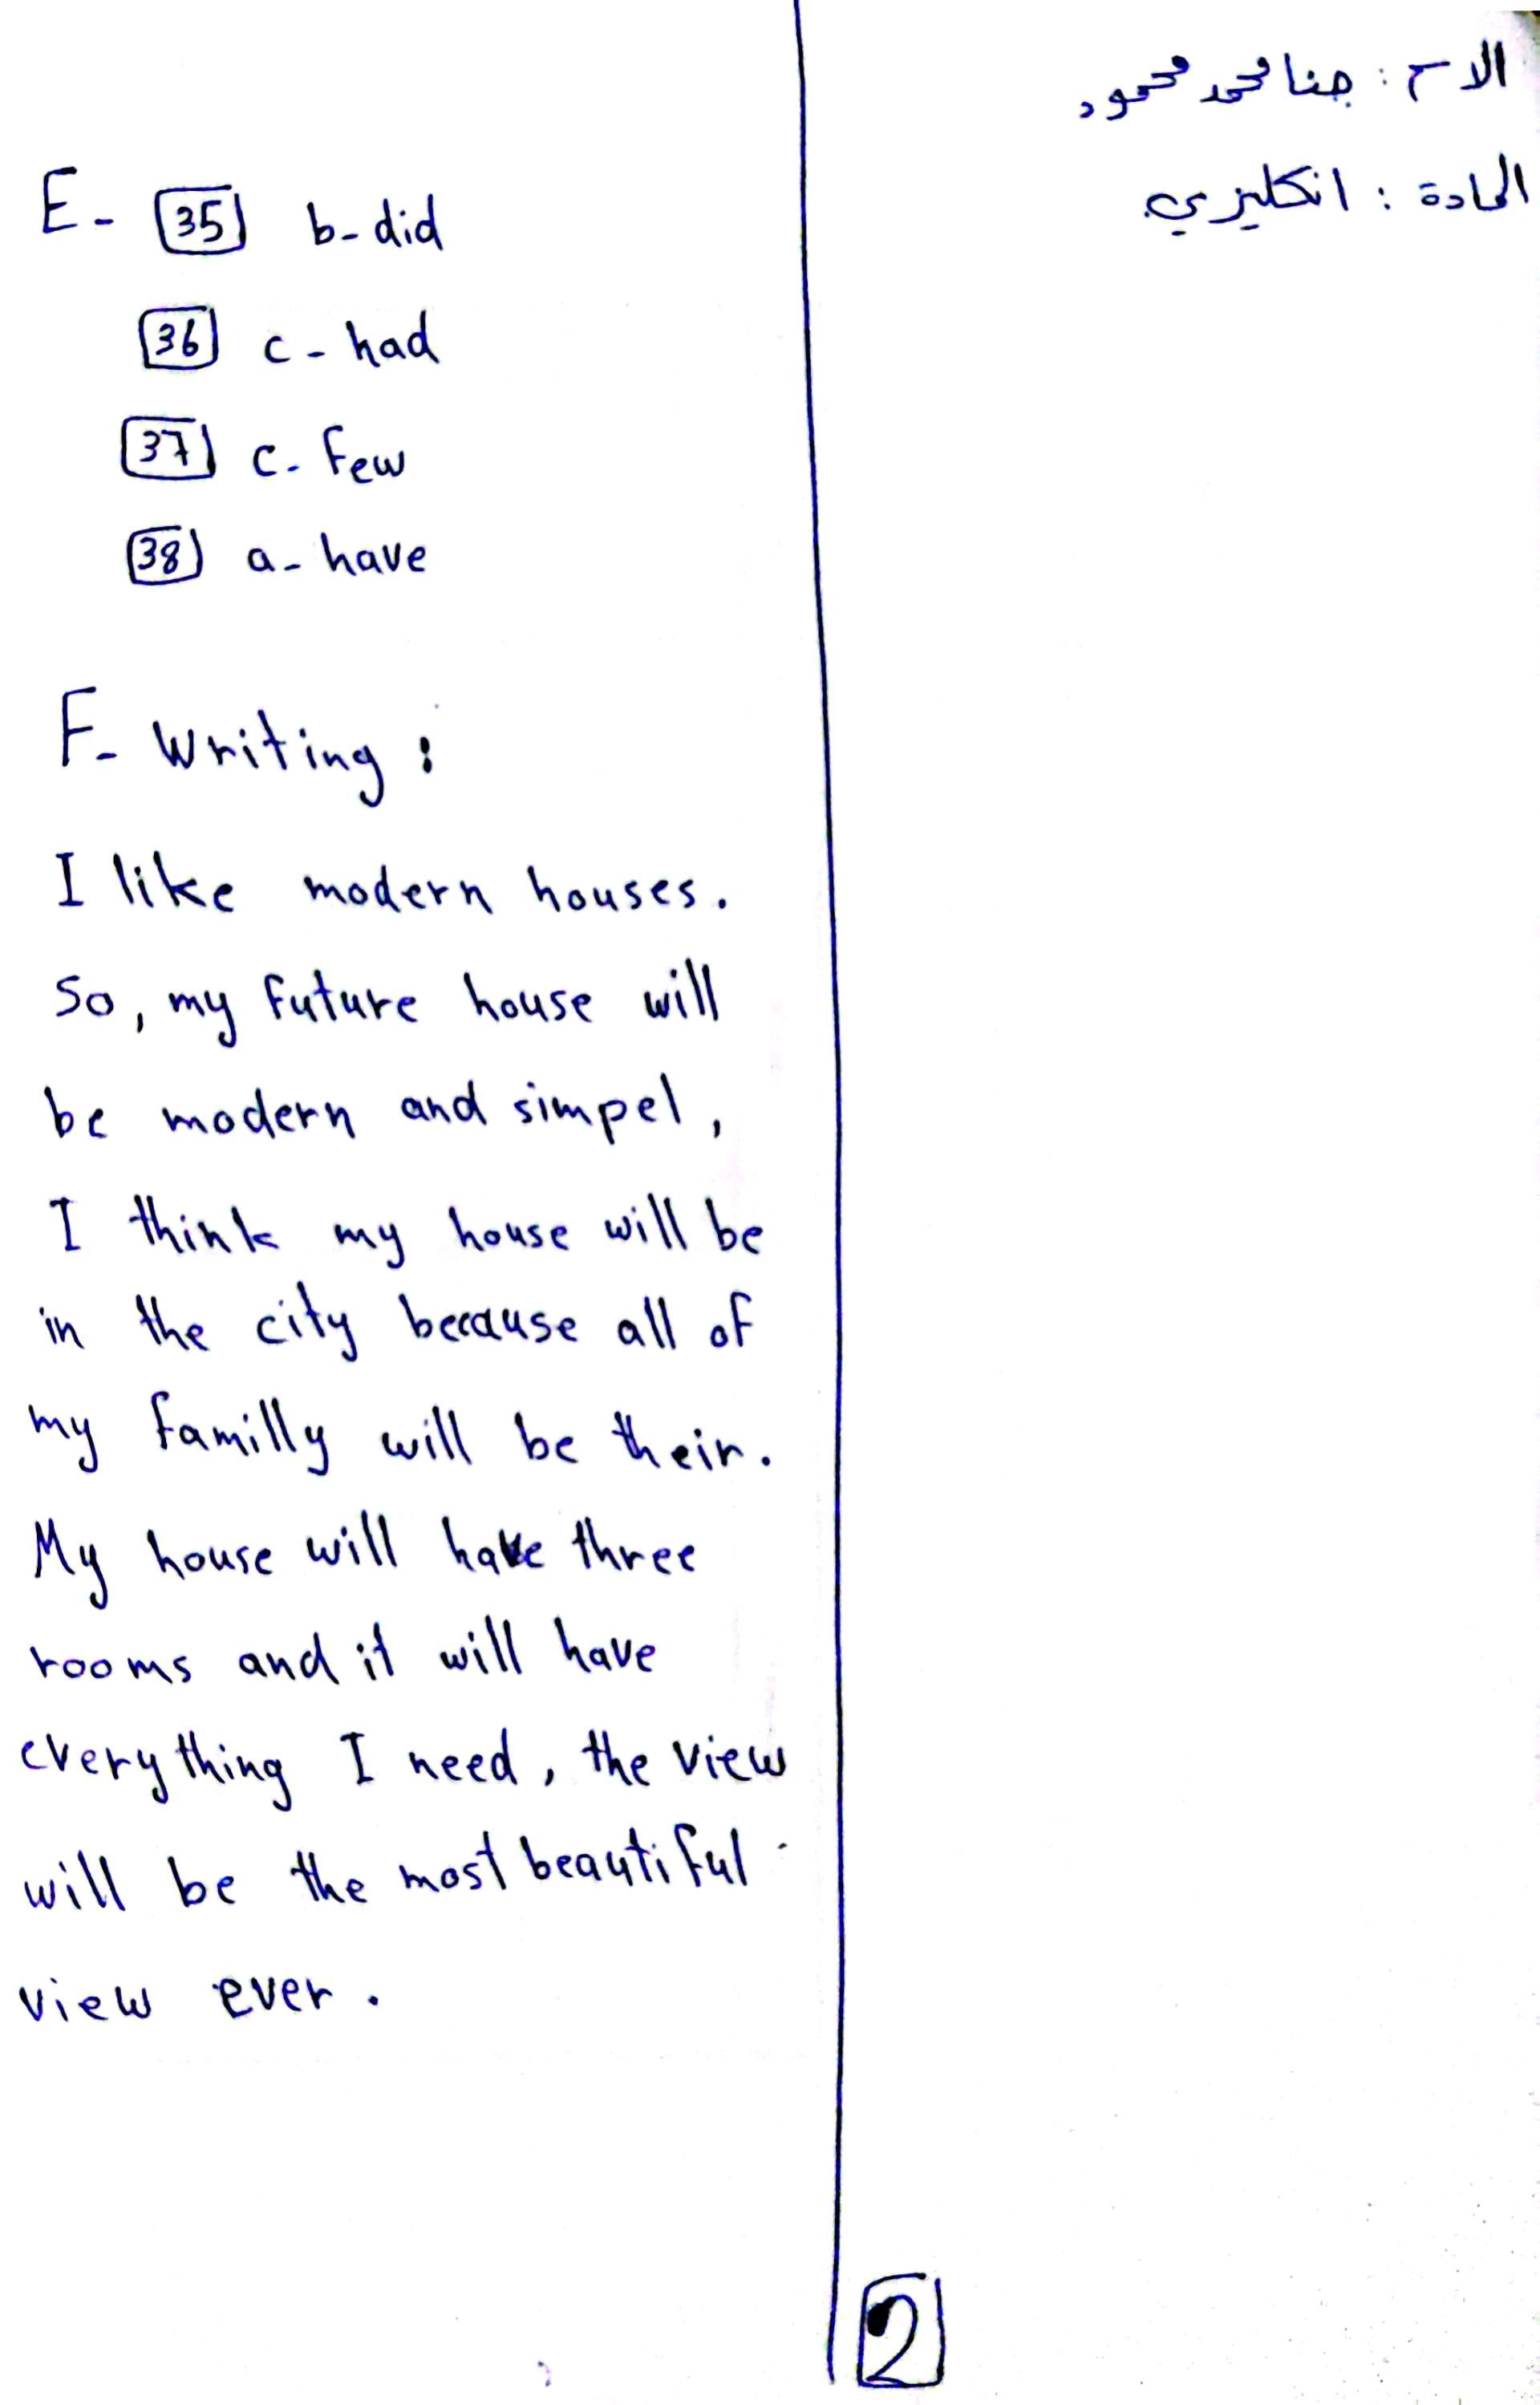 الاسم : جنا محمد محمود
المادة : انكليزي
E- 35 b- did
36 c- had
37 c- few
38 a- have
F- Writing :
I like modern houses.
So, my future house will
be modern and simpel,
I think my house will be
in the city because all of
my familly will be their.
My house will have three
rooms and it will have
everything I need, the view
will be the most beautiful
view ever.
2